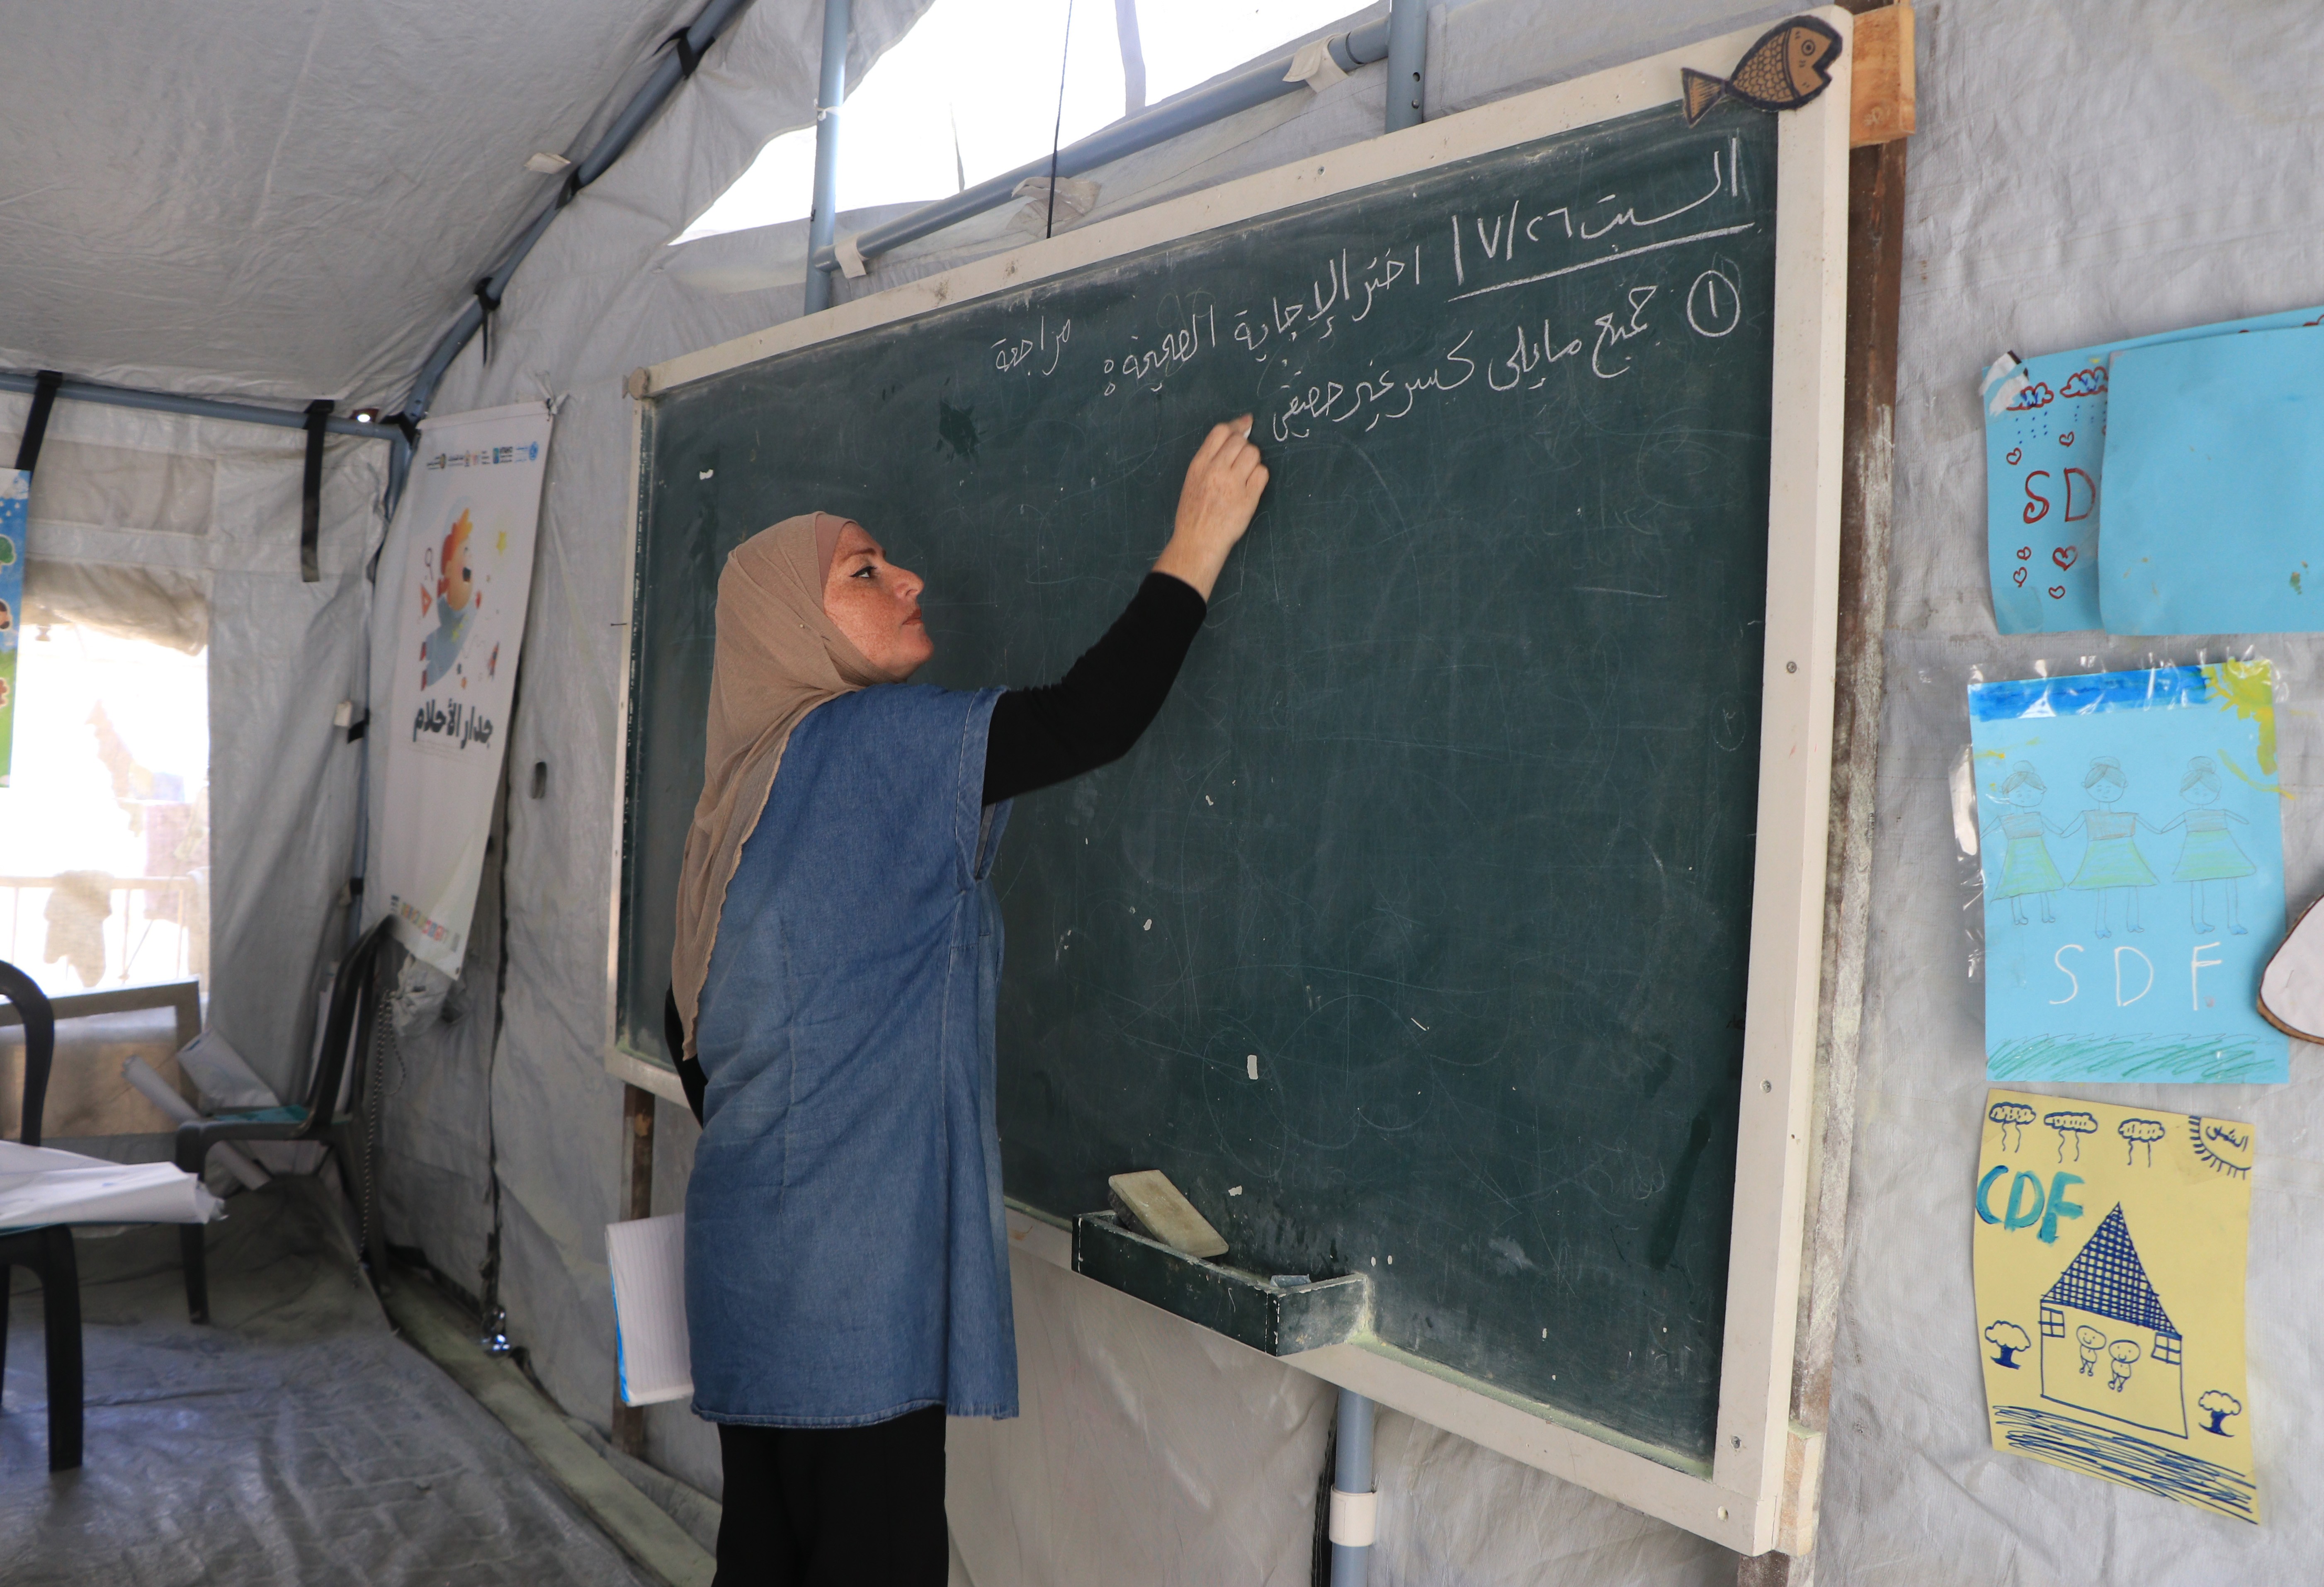 السبت ٧/٢٦ |
اختر الإجابة الصحيحة :
مراجعة
① جميع مايلي كسر غير حقيقي
جدار الأحلام
SD
SDF
الشمس
CDF